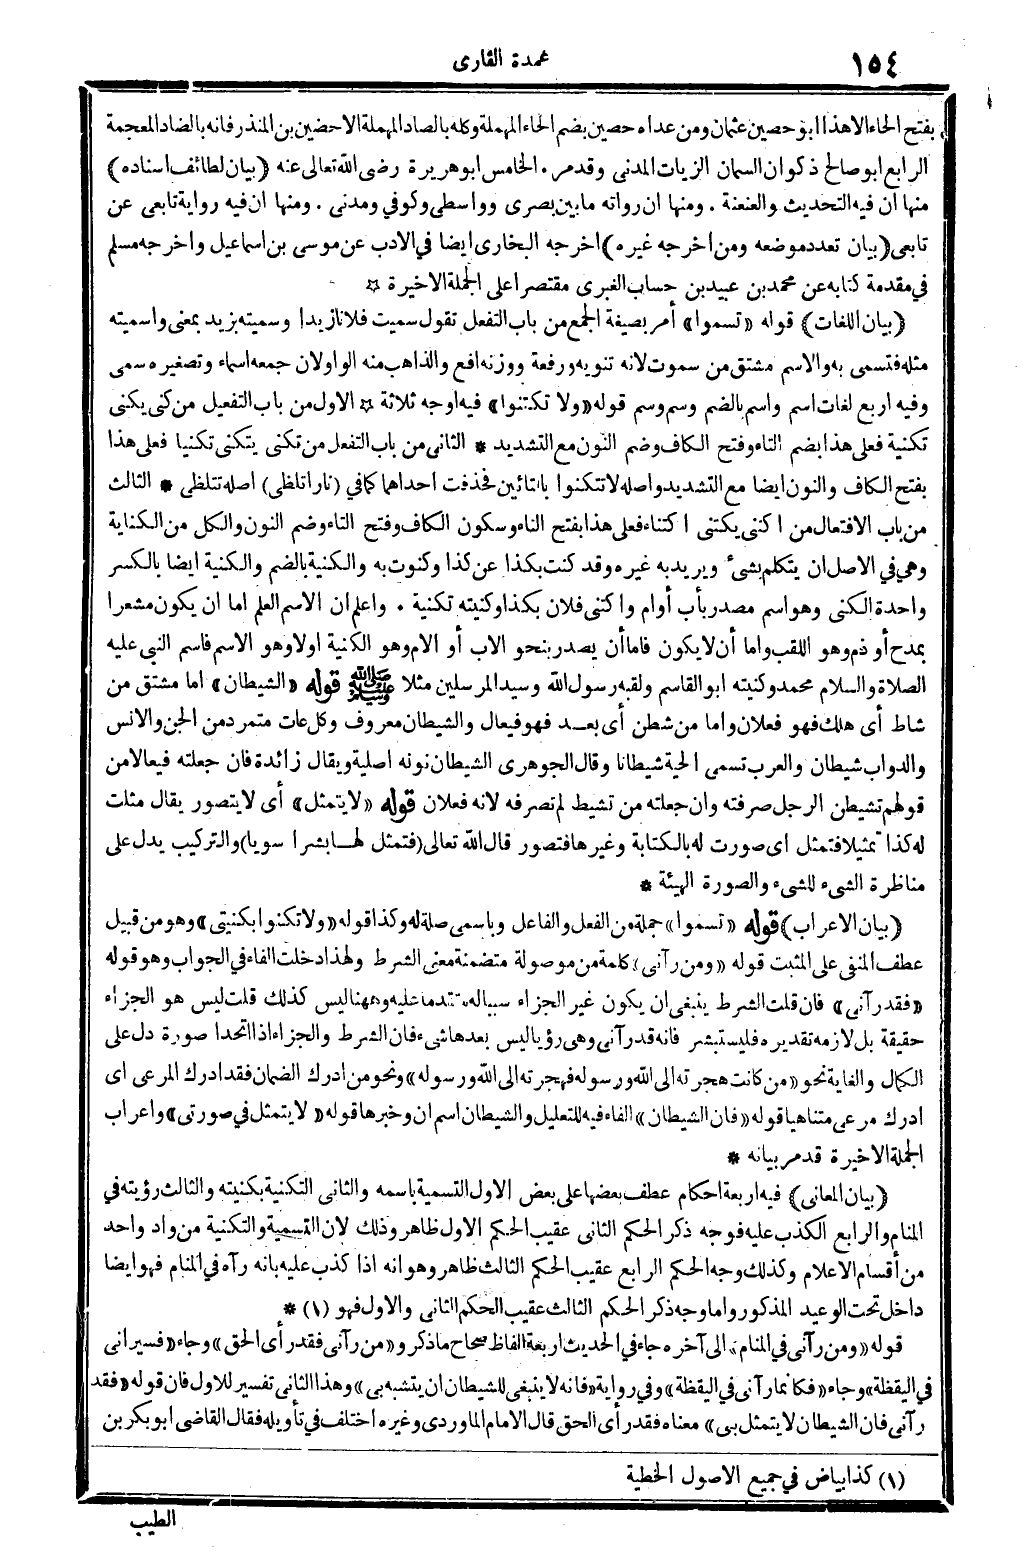 ١٥٤
عمدة القارى
بفتح الحاء الا هذا ابو حصين عثمان ومن عداه حصين بضم الحاء المهملة وكله بالصاد المهملة الا حضين بن المنذر فانه بالضاد المعجمة
الرابع ابو صالح ذكوان السمان الزيات المدنى وقدمر . الخامس ابو هريرة رضى الله تعالى عنه (بيان لطائف اسناده)
منها ان فيه التحديث والعنعنة . ومنها ان رواته ما بين بصرى وواسطى وكوفى ومدنى . ومنها ان فيه رواية تابعى عن
تابعى (بيان تعدد موضعه ومن اخرجه غيره) اخرجه البخارى ايضا فى الادب عن موسى بن اسماعيل واخرجه مسلم
فى مقدمة كتابه عن محمد بن عبيد بن حساب الغبرى مقتصرا على الجملة الاخيرة ☆
(بيان اللغات) قوله «تسموا» أمر بصيغة الجمع من باب التفعل تقول سميت فلانا زيدا وسميته بزيد بمعنى واسميته
مثله فتسمى به والاسم مشتق من سموت لانه تنويه ورفعة ووزنه افع والذاهب منه الواو لان جمعه اسماء وتصغيره سمى
وفيه اربع لغات اسم واسم بالضم وسم وسم قوله «ولا تكتنوا» فيه اوجه ثلاثة ☆ الاول من باب التفعيل من كنى يكنى
تكنية فعلى هذا بضم التاء وفتح الكاف وضم النون مع التشديد * الثانى من باب التفعل من تكنى يتكنى تكنيا فعلى هذا
بفتح الكاف والنون ايضا مع التشديد واصله لا تتكنوا بالتائين فحذفت احداهما كما فى (نارا تلظى) اصله تتلظى * الثالث
من باب الافتعال من اكتنى يكتنى اكتناء فعلى هذا بفتح التاء وسكون الكاف وفتح التاء وضم النون والكل من الكناية
وهى فى الاصل ان يتكلم بشىء ويريد به غيره وقد كنت بكذا عن كذا وكنوت به والكنية بالضم والكنية ايضا بالكسر
واحدة الكنى وهو اسم مصدر بأب أوام واكتنى فلان بكذا وكنيته تكنية . واعلم ان الاسم العلم اما ان يكون مشعرا
بمدح أو ذم وهو اللقب واما أن لا يكون فاما أن يصدر بنحو الاب أو الام وهو الكنية اولا وهو الاسم فاسم النبى عليه
الصلاة والسلام محمد وكنيته ابو القاسم ولقبه رسول الله وسيد المرسلين مثلا ﷺ قوله «الشيطان» اما مشتق من
شاط أى هلك فهو فعلان واما من شطن أى بعــد فهو فيعال والشيطان معروف وكل عات متمرد من الجن والانس
والدواب شيطان والعرب تسمى الحية شيطانا وقال الجوهرى الشيطان نونه اصلية ويقال زائدة فان جعلته فيعالا من
قولهم تشيطن الرجل صرفته وان جعلته من تشيط لم تصرفه لانه فعلان قوله «لا يتمثل» أى لا يتصور يقال مثلت
له كذا تمثيلا فتمثل اى صورت له بالكتابة وغيرها فتصور قال الله تعالى (فتمثل لهــا بشرا سويا) والتركيب يدل على
مناظرة الشىء للشىء والصورة الهيئة *
(بيان الاعراب) قوله «تسموا» جملة من الفعل والفاعل وباسمى صلة له وكذا قوله «ولا تكنوا بكنيتى» وهو من قبيل
عطف المنفى على المثبت قوله «ومن رآنى» كلمة من موصولة متضمنة معنى الشرط ولهذا دخلت الفاء فى الجواب وهو قوله
«فقد رآنى» فان قلت الشرط ينبغى ان يكون غير الجزاء سببا له متقدما عليه وههنا ليس كذلك قلت ليس هو الجزاء
حقيقة بل لازمه تقديره فليستبشر فانه قد رآنى وهى رؤيا ليس بعدها شىء فان الشرط والجزاء اذا اتحدا صورة دل على
الكمال والغاية نحو «من كانت هجرته الى الله ورسوله فهجرته الى الله ورسوله» ونحو من ادرك الضمان فقد ادرك المرعى اى
ادرك مرعى متناهيا قوله «فان الشيطان» الفاء فيه للتعليل والشيطان اسم ان وخبرها قوله «لا يتمثل فى صورتى» واعراب
الجملة الاخيرة قدمر بيانه *
(بيان المعانى) فيه اربعة احكام عطف بعضها على بعض الاول التسمية باسمه والثانى التكنية بكنيته والثالث رؤيته فى
المنام والرابع الكذب عليه فوجه ذكر الحكم الثانى عقيب الحكم الاول ظاهر وذلك لان التسمية والتكنية من واد واحد
من أقسام الاعلام وكذلك وجه الحكم الرابع عقيب الحكم الثالث ظاهر وهو انه اذا كذب عليه بانه رآه فى المنام فهو ايضا
داخل تحت الوعيد المذكور واما وجه ذكر الحكم الثالث عقيب الحكم الثانى والاول فهو (١) *
قوله «ومن رآنى فى المنام» الى آخره جاء فى الحديث اربعة الفاظ صحاح ما ذكر و«من رآنى فقد رأى الحق» وجاء «فسيرانى
فى اليقظة» وجاء «فكأنما رآنى فى اليقظة» وفى رواية «فانه لا ينبغى للشيطان ان يتشبه بى» وهذا الثانى تفسير للاول فان قوله «فقد
رآنى فان الشيطان لا يتمثل بى» معناه فقد رأى الحق قال الامام الماوردى وغيره اختلف فى تأويله فقال القاضى ابو بكر بن
(١) كذا بياض فى جميع الاصول الخطية
الطيب